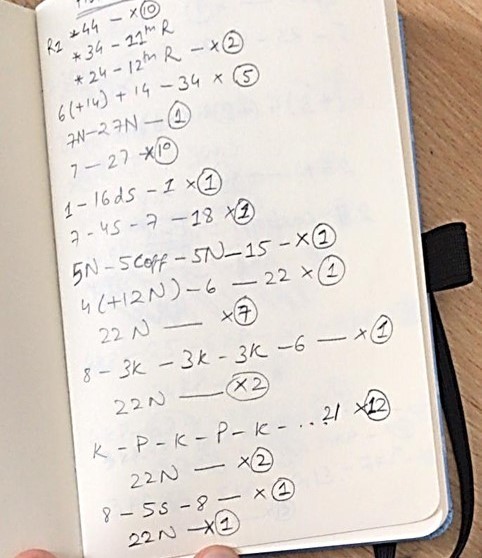 R1 *44 - x10
*34 - 11th R
*24 - 12th R - x2
6(+14) + 14 - 34 x 5
7N-27N - 1
7 - 27 x10
1 - 16ds - 1 x1
7 - 4S - 7 - 18 x1
5N - 5Coff - 5N - 15 - x1
4(+12N) - 6 - 22 x1
22N - x7
8 - 3K - 3K - 3K - 6 - x1
22N - x2
K - P - K - P - K - ... 21 x12
22N - x2
8 - 5S - 8 - x1
22N - x1